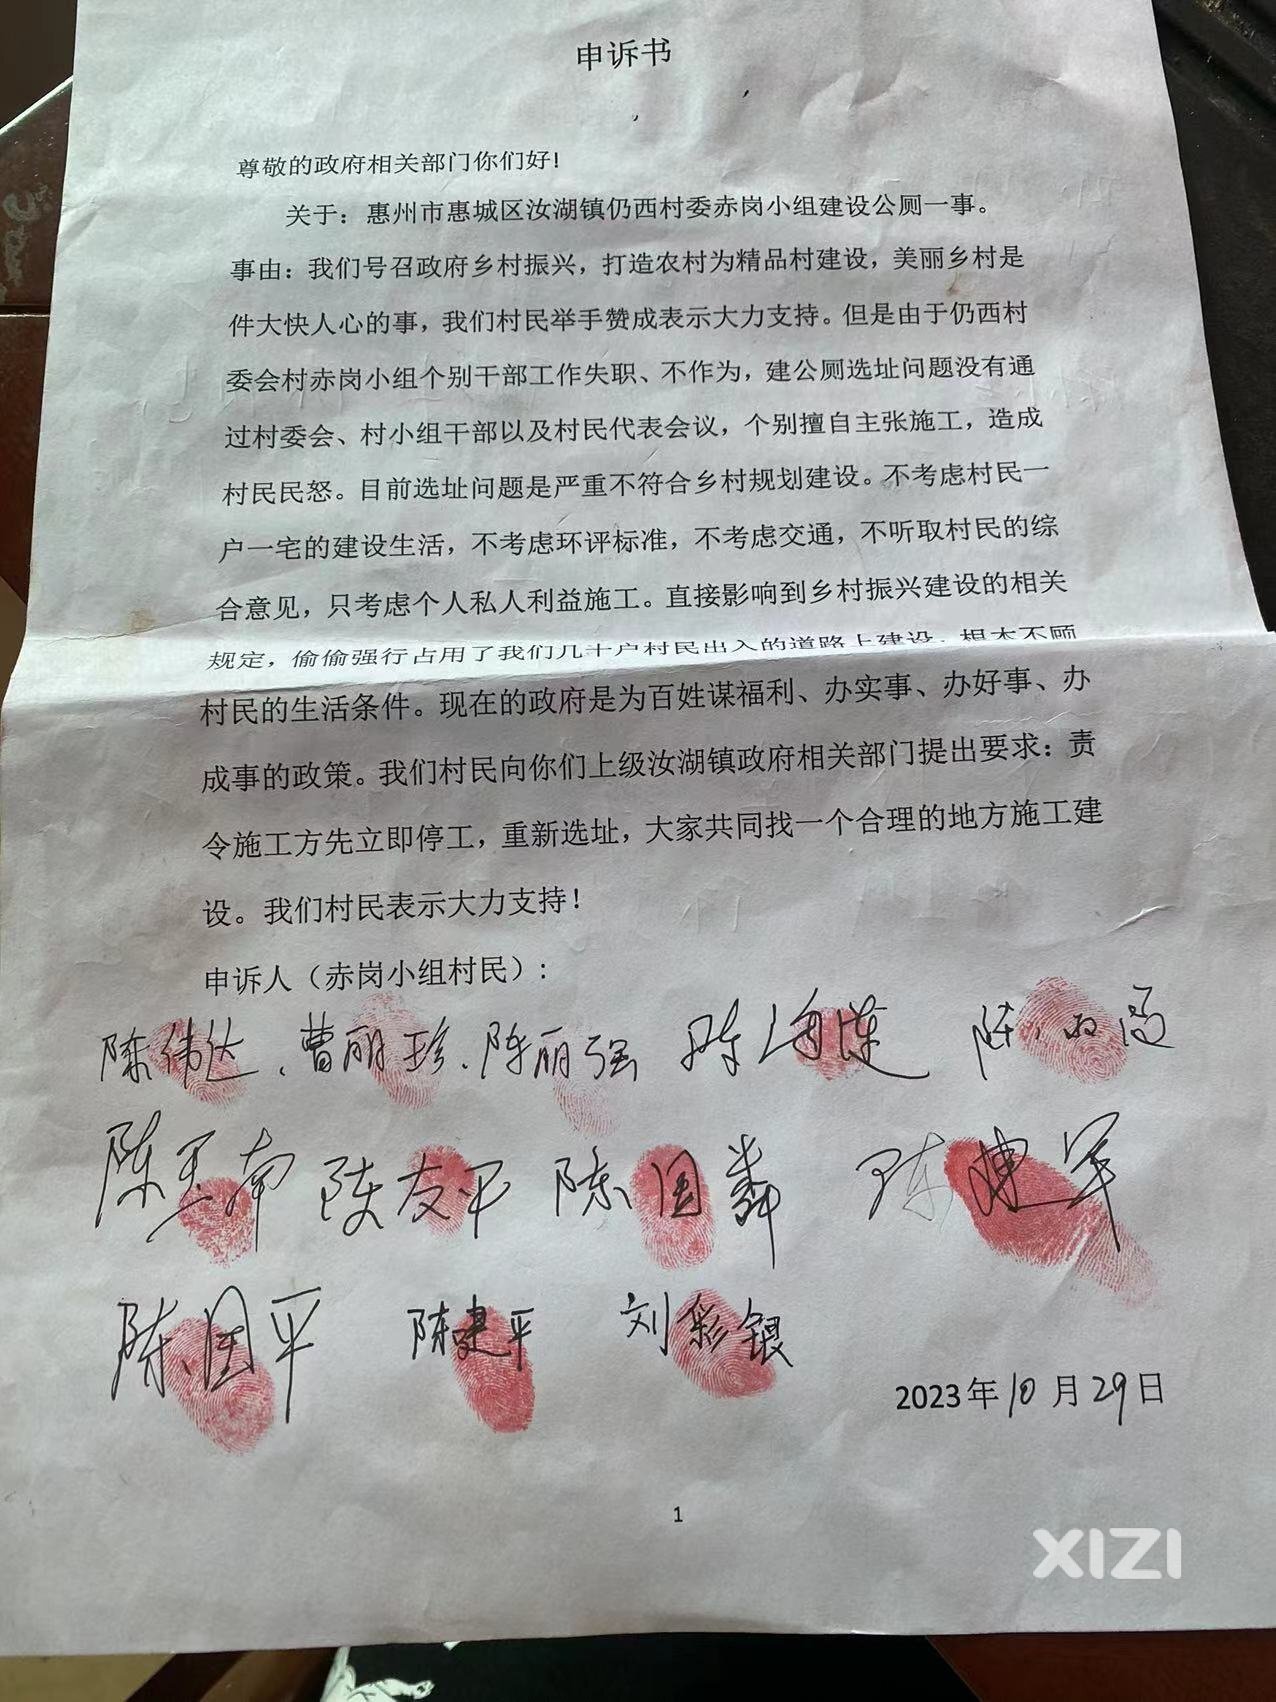 申诉书
尊敬的政府相关部门你们好!
关于：惠州市惠城区汝湖镇仍西村委赤岗小组建设公厕一事。
事由：我们号召政府乡村振兴，打造农村为精品村建设，美丽乡村是
件大快人心的事，我们村民举手赞成表示大力支持。但是由于仍西村
委会村赤岗小组个别干部工作失职、不作为，建公厕选址问题没有通
过村委会、村小组干部以及村民代表会议，个别擅自主张施工，造成
村民民怒。目前选址问题是严重不符合乡村规划建设。不考虑村民一
户一宅的建设生活，不考虑环评标准，不考虑交通，不听取村民的综
合意见，只考虑个人私人利益施工。直接影响到乡村振兴建设的相关
规定，偷偷强行占用了我们几十户村民出入的道路上建设，根本不顾
村民的生活条件。现在的政府是为百姓谋福利、办实事、办好事、办
成事的政策。我们村民向你们上级汝湖镇政府相关部门提出要求：责
令施工方先立即停工，重新选址，大家共同找一个合理的地方施工建
设。我们村民表示大力支持！
申诉人（赤岗小组村民）:
陈伟达、曹丽珍、陈丽强 陈海莲 陈
陈玉南 陈友平 陈国粦 陈建军
陈国平 陈建平 刘彩银
2023年10月29日
1
XIZI